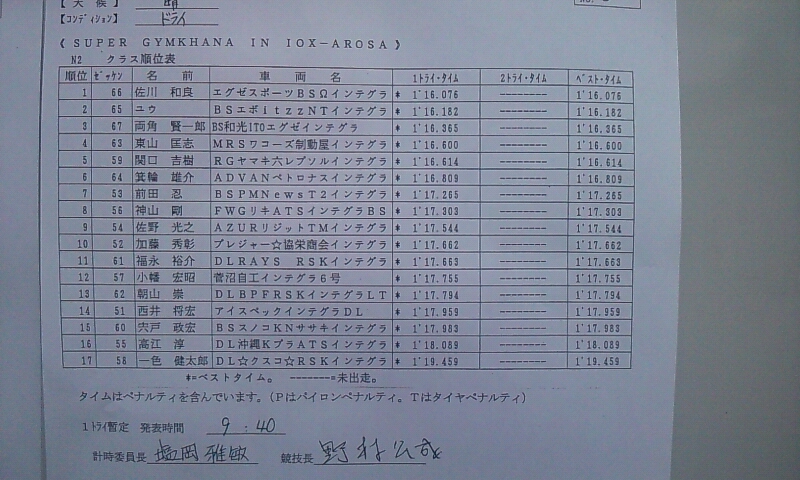 【天 候】 晴
【コンディション】 ドライ
《 SUPER GYMKHANA IN IOX-AROSA 》
N2 クラス順位表
順位 ゼッケン 名 前 車 両 名 1トライ・タイム 2トライ・タイム ベスト・タイム
1 66 佐川 和良 エグゼスポーツBSΩインテグラ * 1'16.076 -------- 1'16.076
2 65 ユウ BSエボitzzNTインテグラ * 1'16.182 -------- 1'16.182
3 67 両角 賢一郎 BS和光ITOエグゼインテグラ * 1'16.365 -------- 1'16.365
4 63 東山 匡志 MRSワコーズ制動屋インテグラ * 1'16.600 -------- 1'16.600
5 59 関口 吉樹 RGヤマキ六レプソルインテグラ * 1'16.614 -------- 1'16.614
6 64 箕輪 雄介 ADVANペトロナスインテグラ * 1'16.809 -------- 1'16.809
7 53 前田 忍 BSPMNewsT2インテグラ * 1'17.265 -------- 1'17.265
8 56 神山 剛 FWGリキATSインテグラBS * 1'17.303 -------- 1'17.303
9 54 佐野 光之 AZURリジットTMインテグラ * 1'17.544 -------- 1'17.544
10 52 加藤 秀彰 プレジャー☆協栄商会インテグラ * 1'17.662 -------- 1'17.662
11 61 福永 裕介 DLRAYS RSKインテグラ * 1'17.663 -------- 1'17.663
12 57 小幡 宏昭 菅沼自工インテグラ6号 * 1'17.755 -------- 1'17.755
13 62 朝山 崇 DLBPFRSKインテグラLT * 1'17.794 -------- 1'17.794
14 51 西井 将宏 アイスペックインテグラDL * 1'17.959 -------- 1'17.959
15 60 宍戸 政宏 BSスノコKNササキインテグラ * 1'17.983 -------- 1'17.983
16 55 高江 淳 DL沖縄KプラATSインテグラ * 1'18.089 -------- 1'18.089
17 58 一色 健太郎 DL☆クスコ☆RSKインテグラ * 1'19.459 -------- 1'19.459
*=ベストタイム。 -------=未出走。
タイムはペナルティを含んでいます。(Pはパイロンペナルティ。Tはタイヤペナルティ)
1トライ暫定 発表時間 9:40
計時委員長 塩岡雅敏 競技長 野村公哉